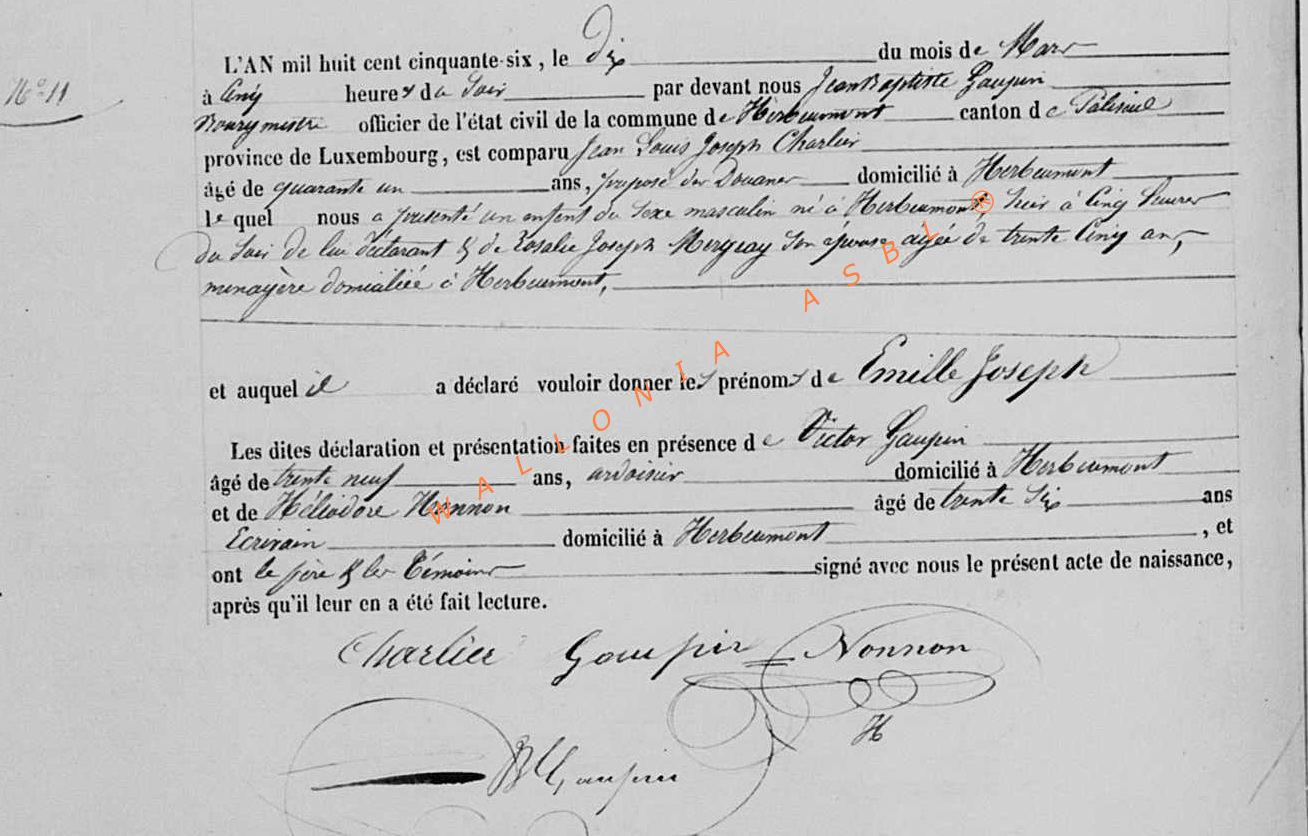 N° 11
L'AN mil huit cent cinquante-six, le Dix du mois de Mars
à Cinq heures du Soir par devant nous Jean Baptiste Gaupin
Bourgmestre officier de l'état civil de la commune de Herbeumont canton de Paliseul
province de Luxembourg, est comparu Jean Louis Joseph Charlier
âgé de quarante un ans, préposé des Douanes domicilié à Herbeumont
lequel nous a présenté un enfant du Sexe masculin né à Herbeumont hier à Cinq heures
du Soir de lui déclarant & de Rosalie Joseph Son épouse agée de trente Cinq ans,
menagère domiciliée à Herbeumont,
et auquel il a déclaré vouloir donner les prénoms de Emille Joseph
Les dites déclaration et présentation faites en présence de Victor Gaupin
âgé de trente neuf ans, ardoisier domicilié à Herbeumont
et de Héliodore Nonnon âgé de trente Six ans
Ecrivain domicilié à Herbeumont, et
ont le père & les Témoins signé avec nous le présent acte de naissance,
après qu'il leur en a été fait lecture.
Charlier Gaupin Nonnon
H
JB Gaupin
WALLONIA ASBL ®